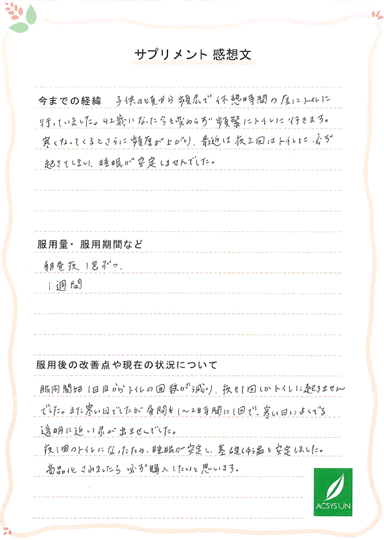 サプリメント 感想文
今までの経緯 子供の頃から頻尿で休憩時間の度にトイレに
行っていました。42歳になった今も変わらず頻繁にトイレに行きます。
寒くなってくるとさらに頻度が上がり、最近は夜2回はトイレに必ず
起きてしまい、睡眠が安定しませんでした。
服用量・服用期間など
朝昼夜 1包ずつ.
1週間
服用後の改善点や現在の状況について
服用開始1日目からトイレの回数が減り、夜も1回しかトイレに起きません
でした。また寒い日でしたが昼間も1〜2時間に1回で、寒い日によくでる
透明に近い尿が出ませんでした。
夜1回のトイレになったため、睡眠が安定し、基礎体温も安定しました。
商品化されましたら必ず購入したいと思います。
ACSYS UN